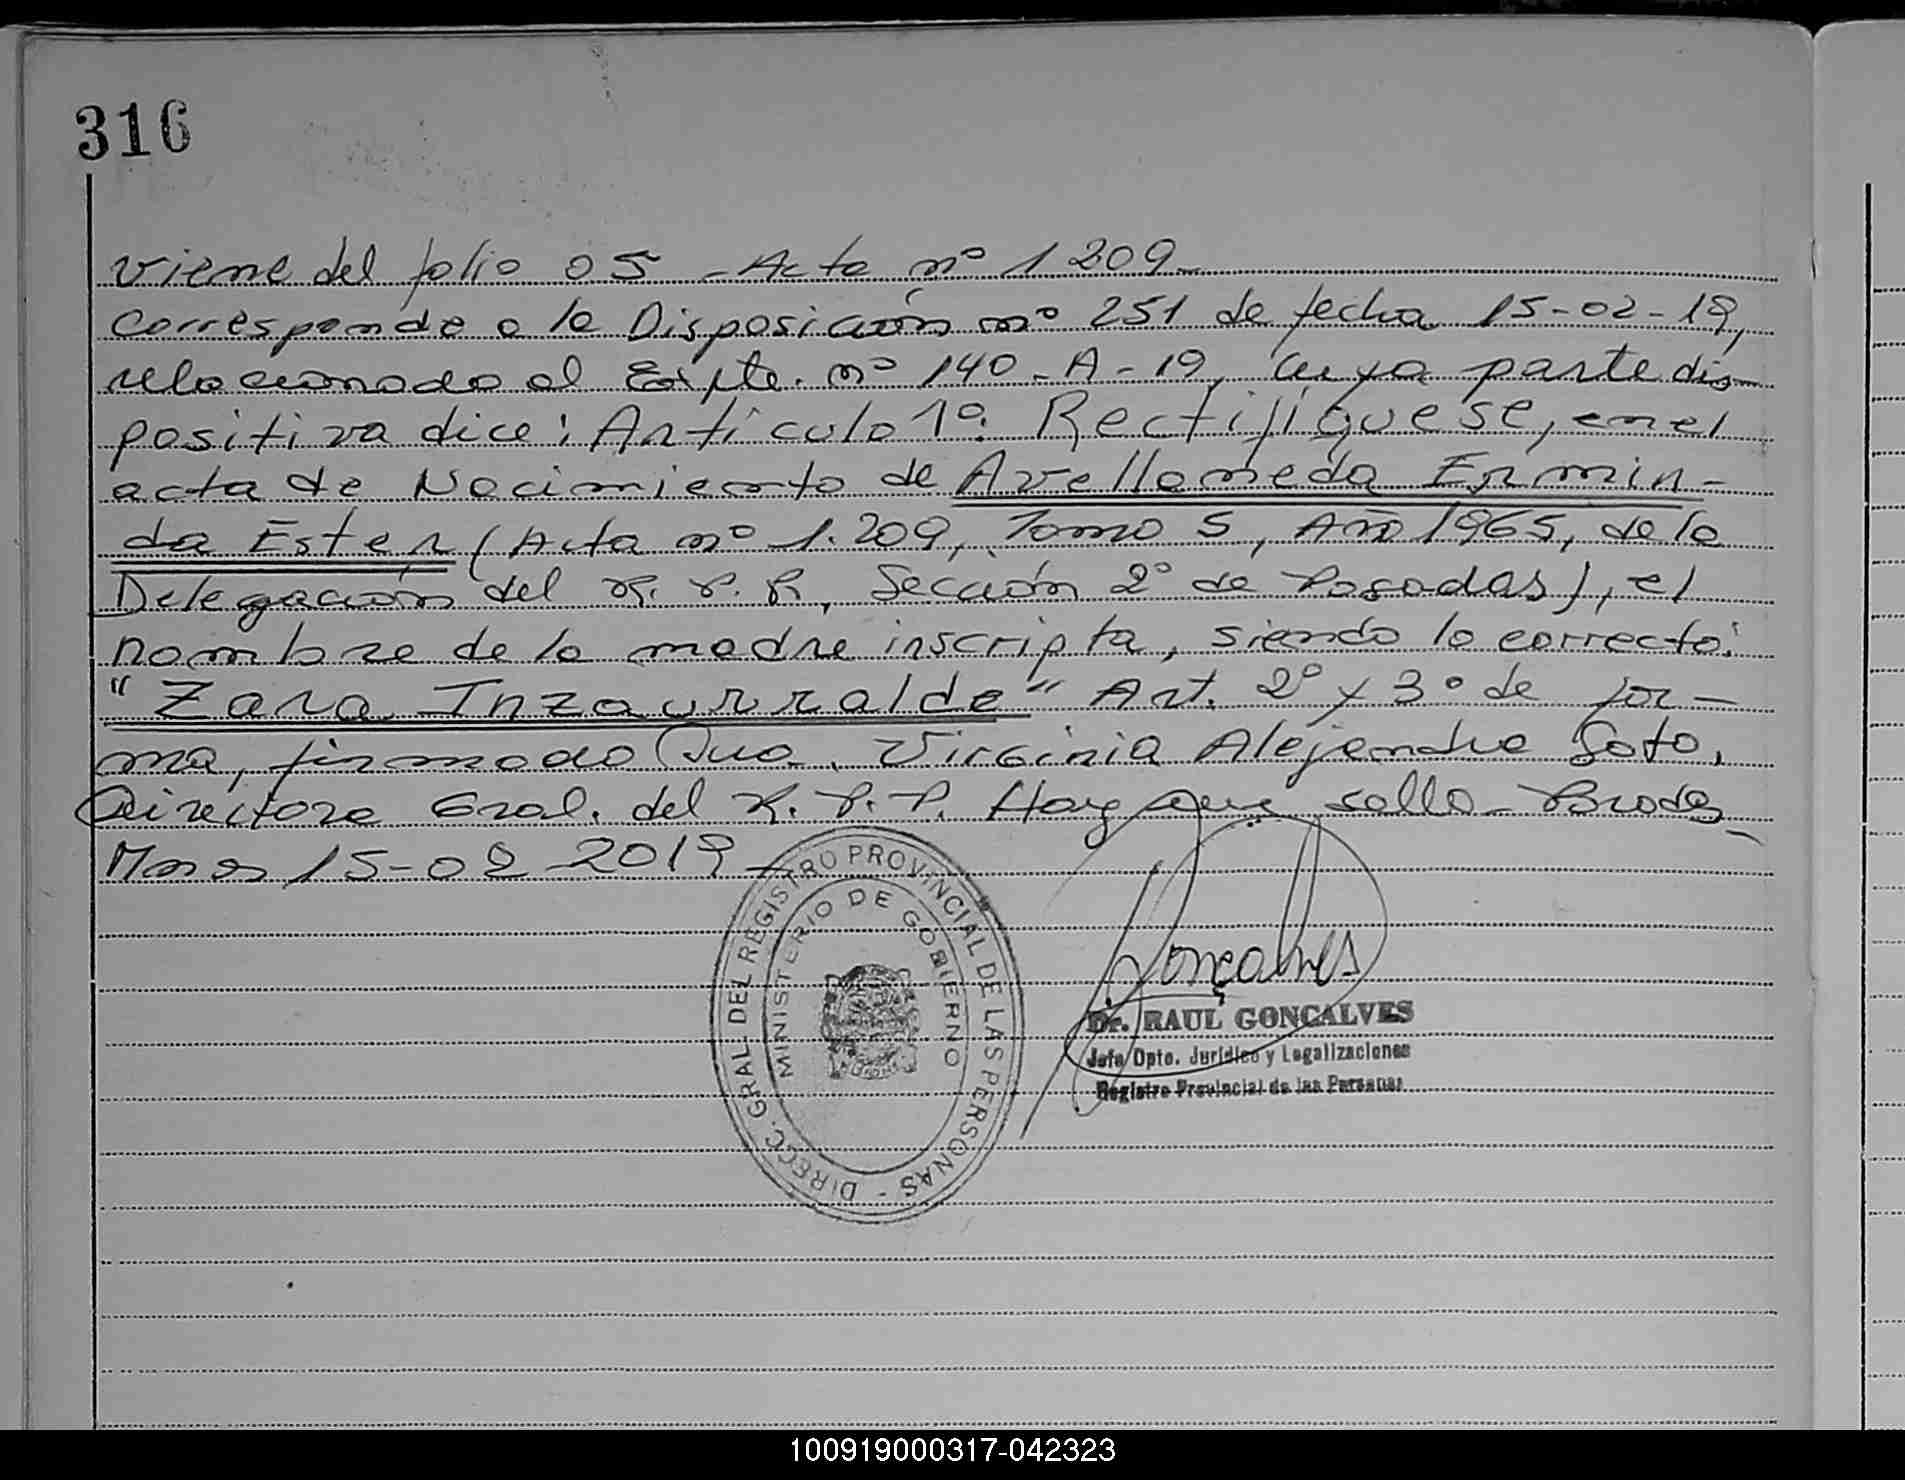 316
Viene del folio 05 - Acta nº 1209-
Corresponde a la Disposición nº 251 de fecha 15-02-19,
relacionado al Expte. nº 140-A-19, cuya parte dis-
positiva dice: Artículo 1º: Rectifíquese, en el
acta de Nacimiento de Avellaneda Ermin-
da Ester (Acta nº 1.209, Tomo 5, Año 1965, de la
Delegación del R.P.P, Sección 2º de Posadas), el
nombre de la madre inscripta, siendo lo correcto:
"Zara Inzaurralde" Art. 2º y 3º de for-
ma, firmado Dra. Virginia Alejandra Soto,
Directora Gral. del R.P.P. Hay un sello - Posadas
Mnes 15-02-2019-
DIRECC. GRAL. DEL REGISTRO PROVINCIAL DE LAS PERSONAS -
MINISTERIO DE GOBIERNO
Gonçalves
Dr. RAUL GONCALVES
Jefe Dpto. Jurídico y Legalizaciones
Registro Provincial de las Personas
100919000317-042323